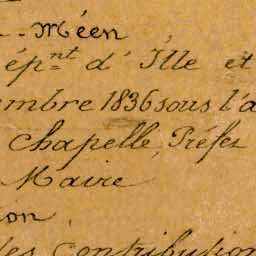 Méen
ép.nt d'Ille et
embre 1836 sous l'a
chapelle, Préfet
Maire
ion,
les contribution